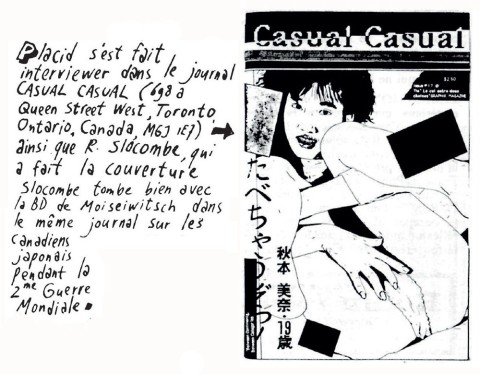 Placid s'est fait
interviewer dans le journal
CASUAL CASUAL (698a
Queen Street West, Toronto
Ontario, Canada, M6J 1E7)
ainsi que R. Slocombe, qui
a fait la couverture
Slocombe tombe bien avec
la BD de Moiseiwitsch dans
le même journal sur les
Canadiens
japonais
pendant la
2me Guerre
Mondiale.
Casual Casual
$2.50
ISSUE #17
GRAPHIC MAGAZINE
たべちゃうぞっ!
秋本 美奈・19歳